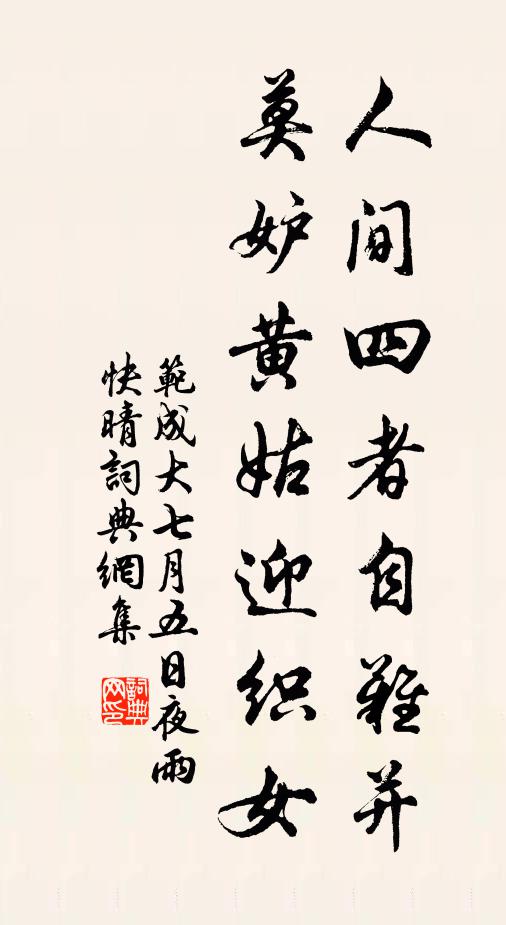 人间四者自难并
莫妒黄姑迎织女
範成大七月五日夜雨
快晴詞典網集
詞典网印